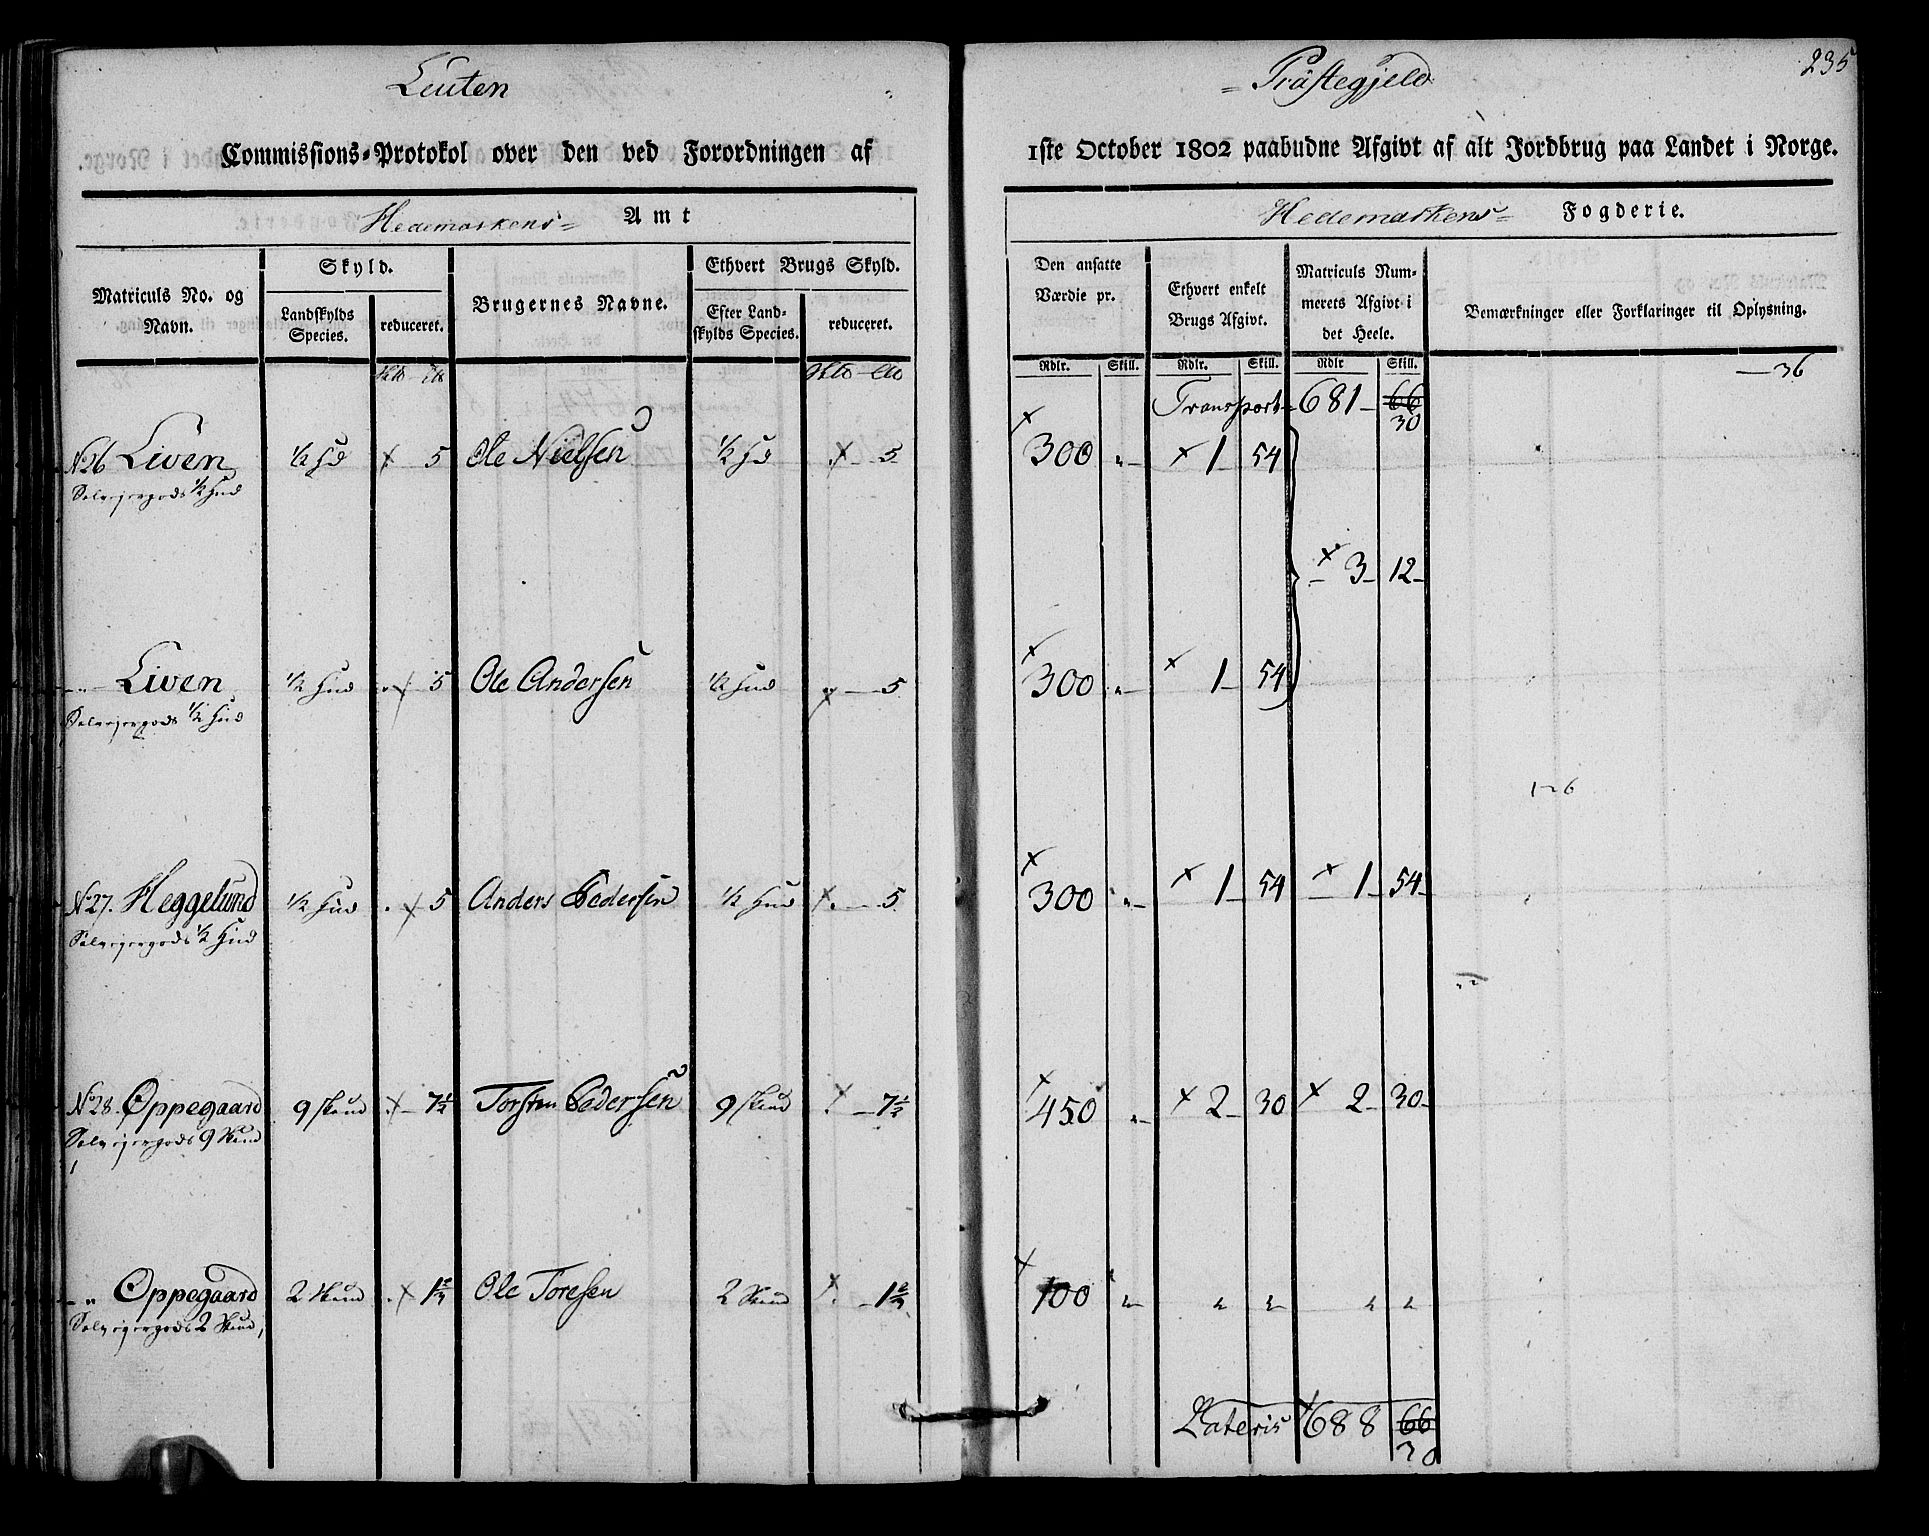 Leuten
= Præstegjeld
235
Commissions-Protokol over den ved Forordningen af
1ste October 1802 paabudne Afgivt af alt Jordbrug paa Landet i Norge.
Hedemarkens= Amt
Hedemarkens= Fogderie.
Matriculs No. og Navn.
Skyld.
Landskylds Species.
reduceret.
Brugernes Navne.
Ethvert Brugs Skyld.
Efter Landskylds Species.
reduceret.
Den ansatte Værdie pr.
Ethvert enkelt Brugs Afgivt.
Matriculs Nummerets Afgivt i det Heele.
Bemærkninger eller Forklaringer til Oplysning.
Rdlr. Skill. Rdlr. Skill. Rdlr Skill.
—36
Transport 681 66
30
No 26 Liven ½ Hd x 5 Ole Nielsen ½ Hd x 5 x 300 " x 1 54
Selveyergods ½ Hud
x 3 12
" Liven ½ Hud x 5 Ole Andersen ½ Hud x 5 x 300 " x 1 54
Selveyergods ½ Hud
1-6
No 27. Heggelund ½ Hud x 5 Anders Pedersen ½ Hud x 5 x 300 " x 1 54 x 1 54
Selveyergods ½ Hud
No 28. Oppegaard 9 Skind x 7½ Torsten Pedersen 9 Skind x 7½ x 450 " x 2 30 x 2 30
Selveyergods 9 Skind
" Oppegaard 2 Skind x 1⅔ Ole Toresen 2 Skind x 1⅔ x 100 " " " " "
Selveyergods 2 Skind
Lateris 688 66
30